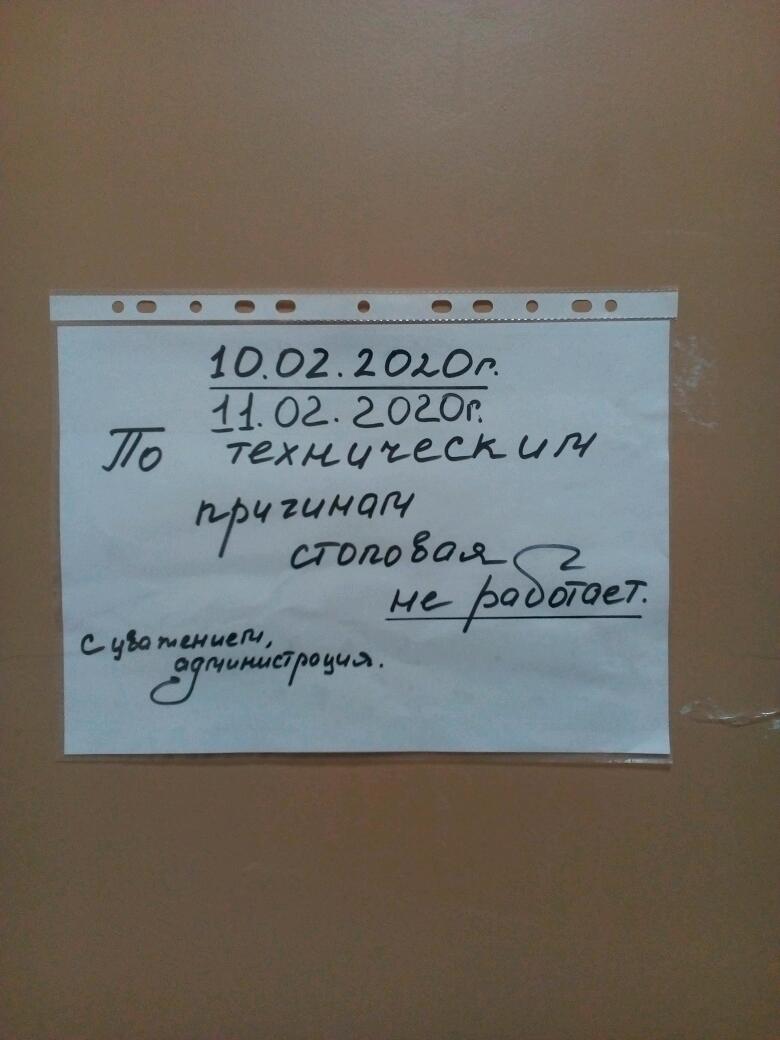 10.02.2020г.
11.02.2020г.
По техническим
причинам
столовая
не работает.
С уважением,
администрация.